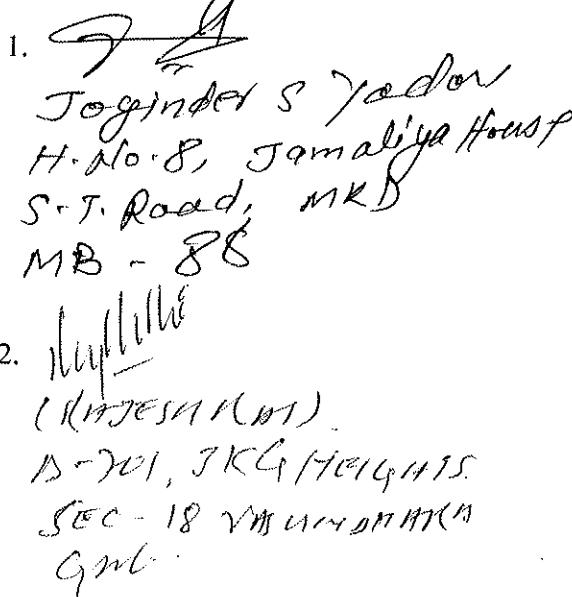 1.
Joginder S Yadav
H. No. 8, Jamaliya House
S. T. Road, MKD
MB - 88
2.
(RAJESH
JKG HEIGHTS
SEC - 18 VASUNDHARA